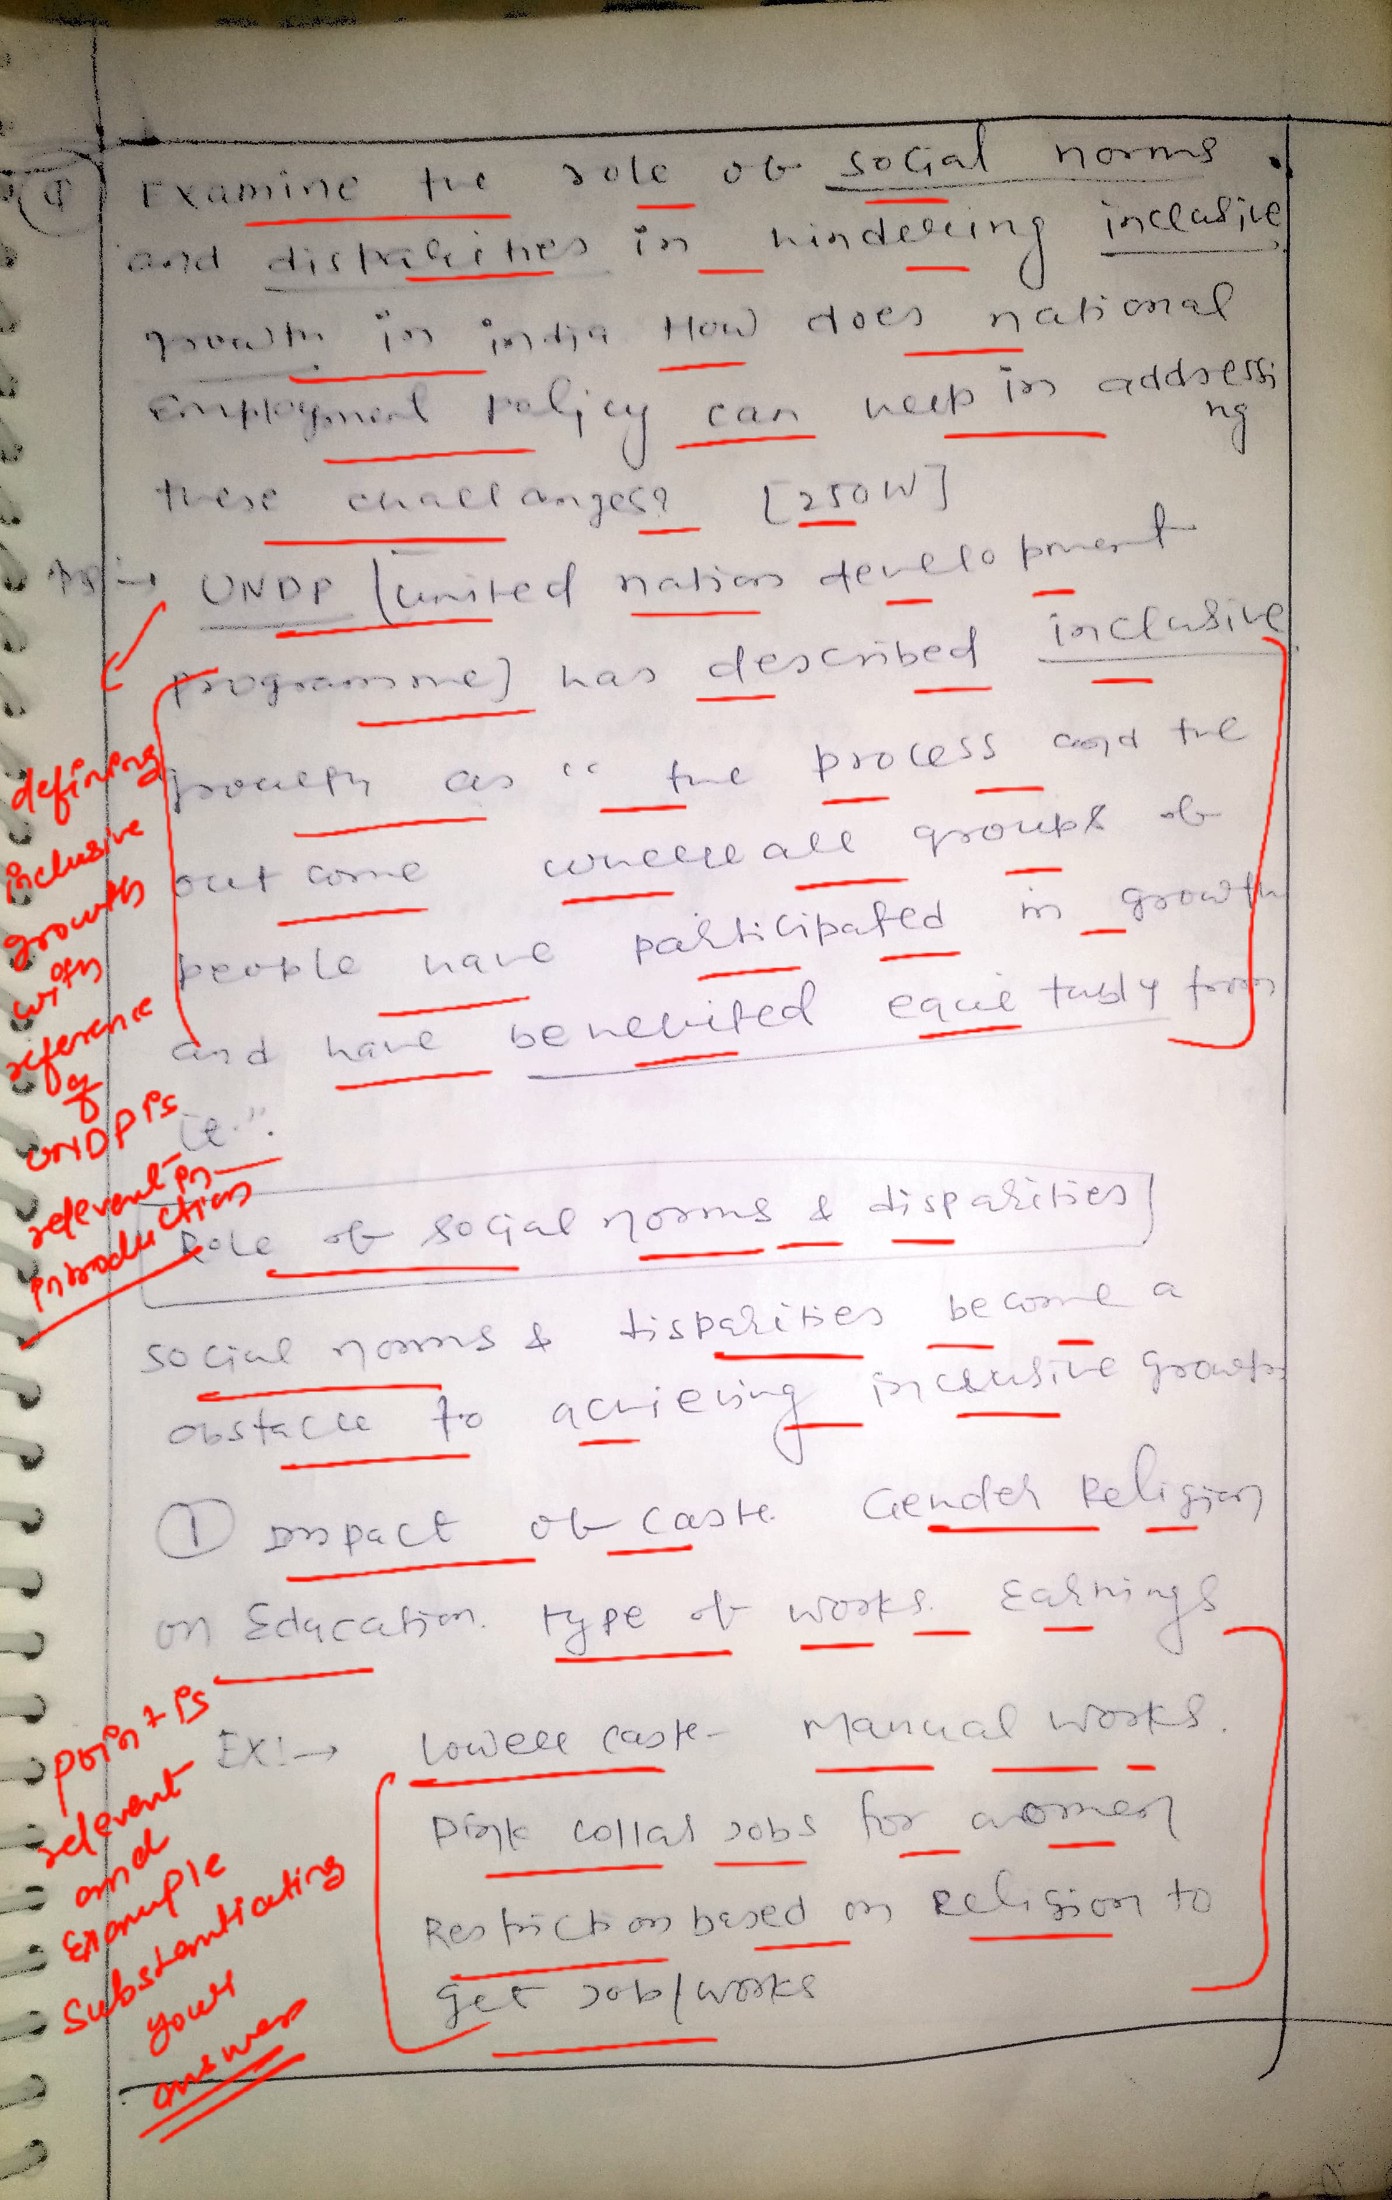 ① Examine the role of social norms
and disparities in hindering inclusive
growth in india How does national
Employment policy can help in addressi
ng
these challanges? [250W]
Ans:→ UNDP [united nation development
programme] has described inclusive
growth as "the process and the
out come where all groups of
people have participated in growth
and have benefited equitably from
it".
Role of social norms & disparities
social norms & disparities become a
obstacle to achieving inclusive growth
① Impact of caste. Gender Religion
on Education. type of works. Earnings
EX:→ Lower caste- Manual works.
Pink collar jobs for women
Restriction based on Religion to
get job/works
defining
inclusive
growth
with
reference
of
UNDP is
relevant in
introduction
point is
relevant
and
Example
Substantiating
your
answer